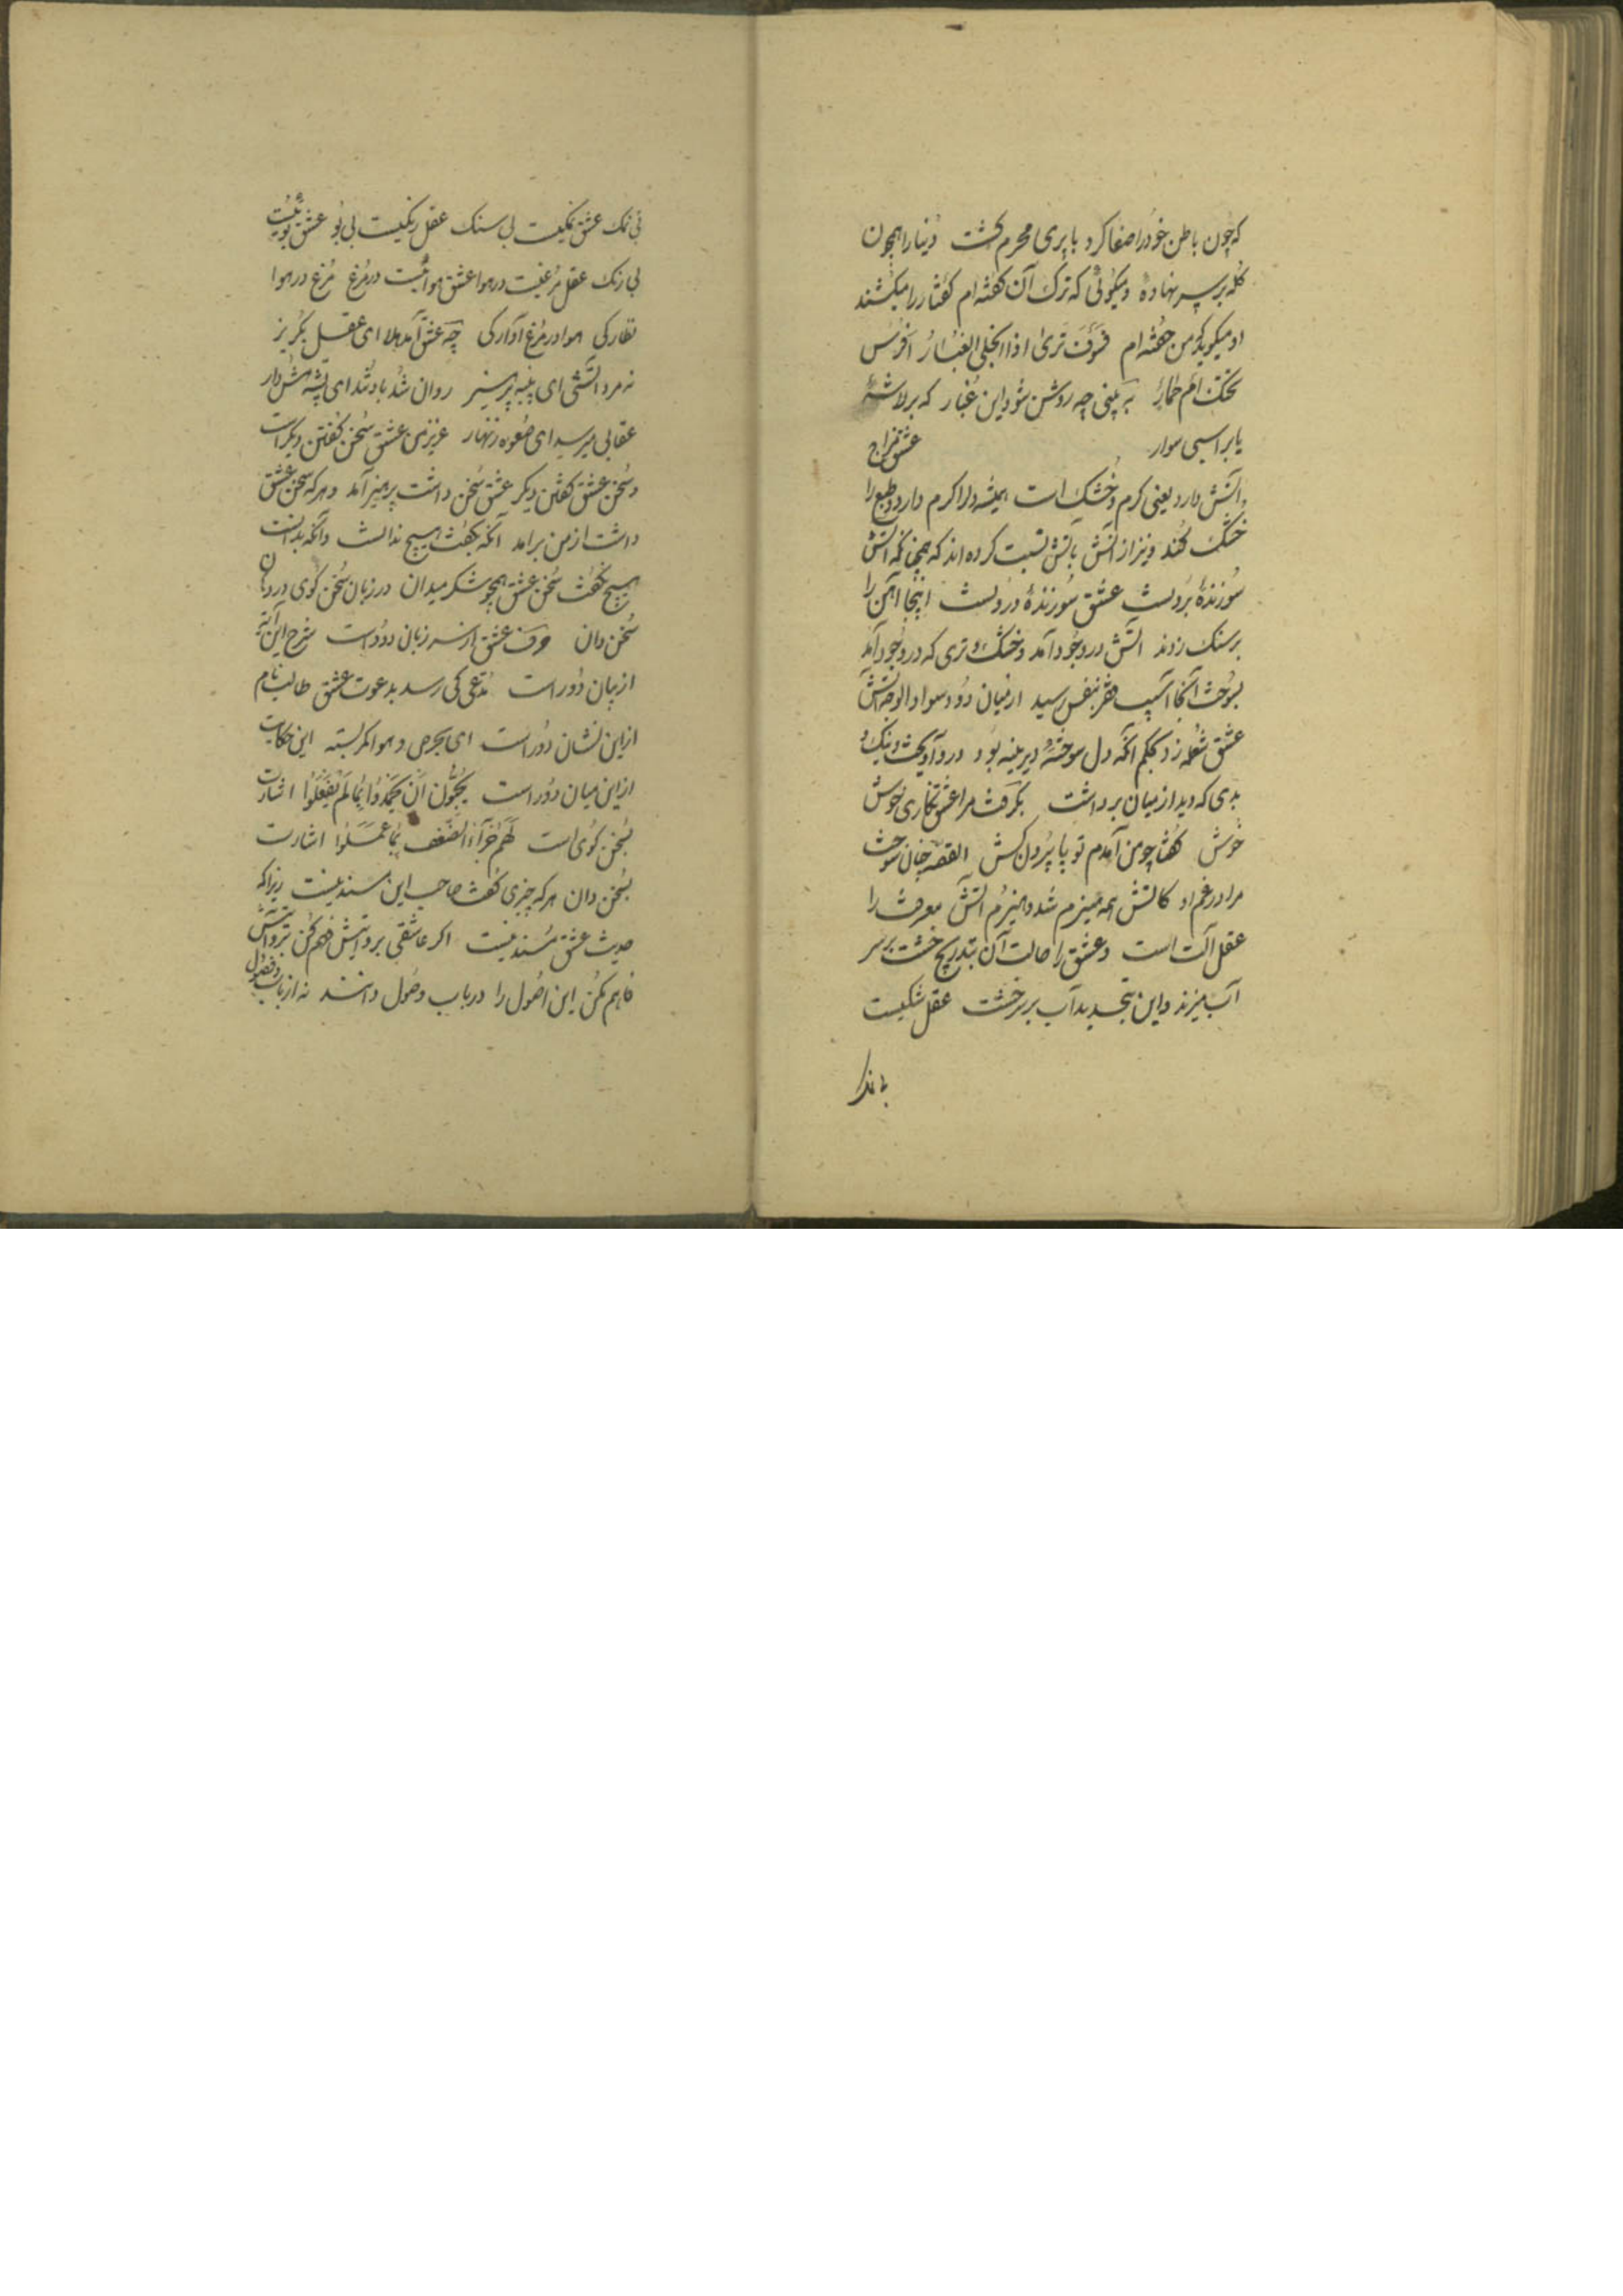 که چون باطن خود را صفا کرد با پری محرم گشت دنیا را همچون
کله بر سر نهادهٔ و میگوئی که ترک آن گفته ام کفتار را میکشند
او میگوید که من خفته ام فَسَوْفَ تَریٰ اذا انجلی الغُبَارُ اَفَرَسٌ
تحتک اَم حِمَارٌ به بینی چه روشن شود این غبار که بر لاشهٔ
یا بر اسبی سوار عشق مزاج
آتش دارد یعنی گرم و خشک است همیشه دل را گرم دارد و طبع را
خشک کند و نیز از آتش بآتش نسبت کرده اند که همچنانکه آتش
سوزندهٔ برونست عشق سوزندهٔ درونست اینجا آهن را
بر سنک زدند آتش در وجود آمد و خشک و تری که در وجود آمد
بسوخت آنجا آسیب فقر بنفس رسید از میان دود سواد الوجه آتش
عشق شعله زد بحکم آنکه دل سوختهٔ دیرینه بود در وآویخت و نیک و
بدی که دید از میان برداشت بگرفت مرا عشق نگاری خوش
خوش گفتا چو من آمدم تو پا بیرون کش القصه چنان سوخت
مرا در غم او کاتش همه هیزم شد و هیزم آتش معرفت را
عقل آلت است و عشق را حالت آن بتدریج خشت بر سر
آب میزند و این بتجدید آب بر سر خشت عقل سنکیست
بی نمک عشق نمکیست بی سنک عقل رنکیست بی بو عشق بوئیست
بی رنک عقل مرغیست در هوا عشق هوائیست در مرغ مرغ در هوا
نظارکی هوا در مرغ آوارکی چه عشق آمد هلا ای عقل بگریز
نه مرد آتشی ای پنبه پرهیز روان شد باد تند ای پشه هش دار
عقابی میرسد ای صعوه زنهار عزیز من عشق سخن گفتن دیگر است
و سخن عشق گفتن دیگر عشق سخن داشت پرهیز آمد و هر که سخن عشق
داشت از من برآمد آنکه بگفت هیچ ندانست وآنکه بدانست
هیچ نگفت سخن عشق همچو شکر میدان در زبان سخن گوی در دهان
سخن دان حرف عشق از سر زبان دور است شرح این آیه
از بیان دور است مدعی کی رسد بدعوت عشق طالب نام
از این نشان دور است ای بحرص و هوا کمر بسته این حکایت
از این میان دور است یُحِبُّونَ اَنْ یُحْمَدُوا بِمَا لَمْ یَفْعَلُوا اشارت
بسخن گوی است لَهُمْ جَزَآءُ الضِّعْفِ بِمَا عَمِلُوا اشارت
بسخن دان هر که چیزی گفت صاحب این مسند نیست زیرا که
حدیث عشق مسند نیست اگر عاشقی بر و آتش فهم کن تو و آتش
فاهم مکن این اصول را در باب وصول دانند نه از باب و فصول